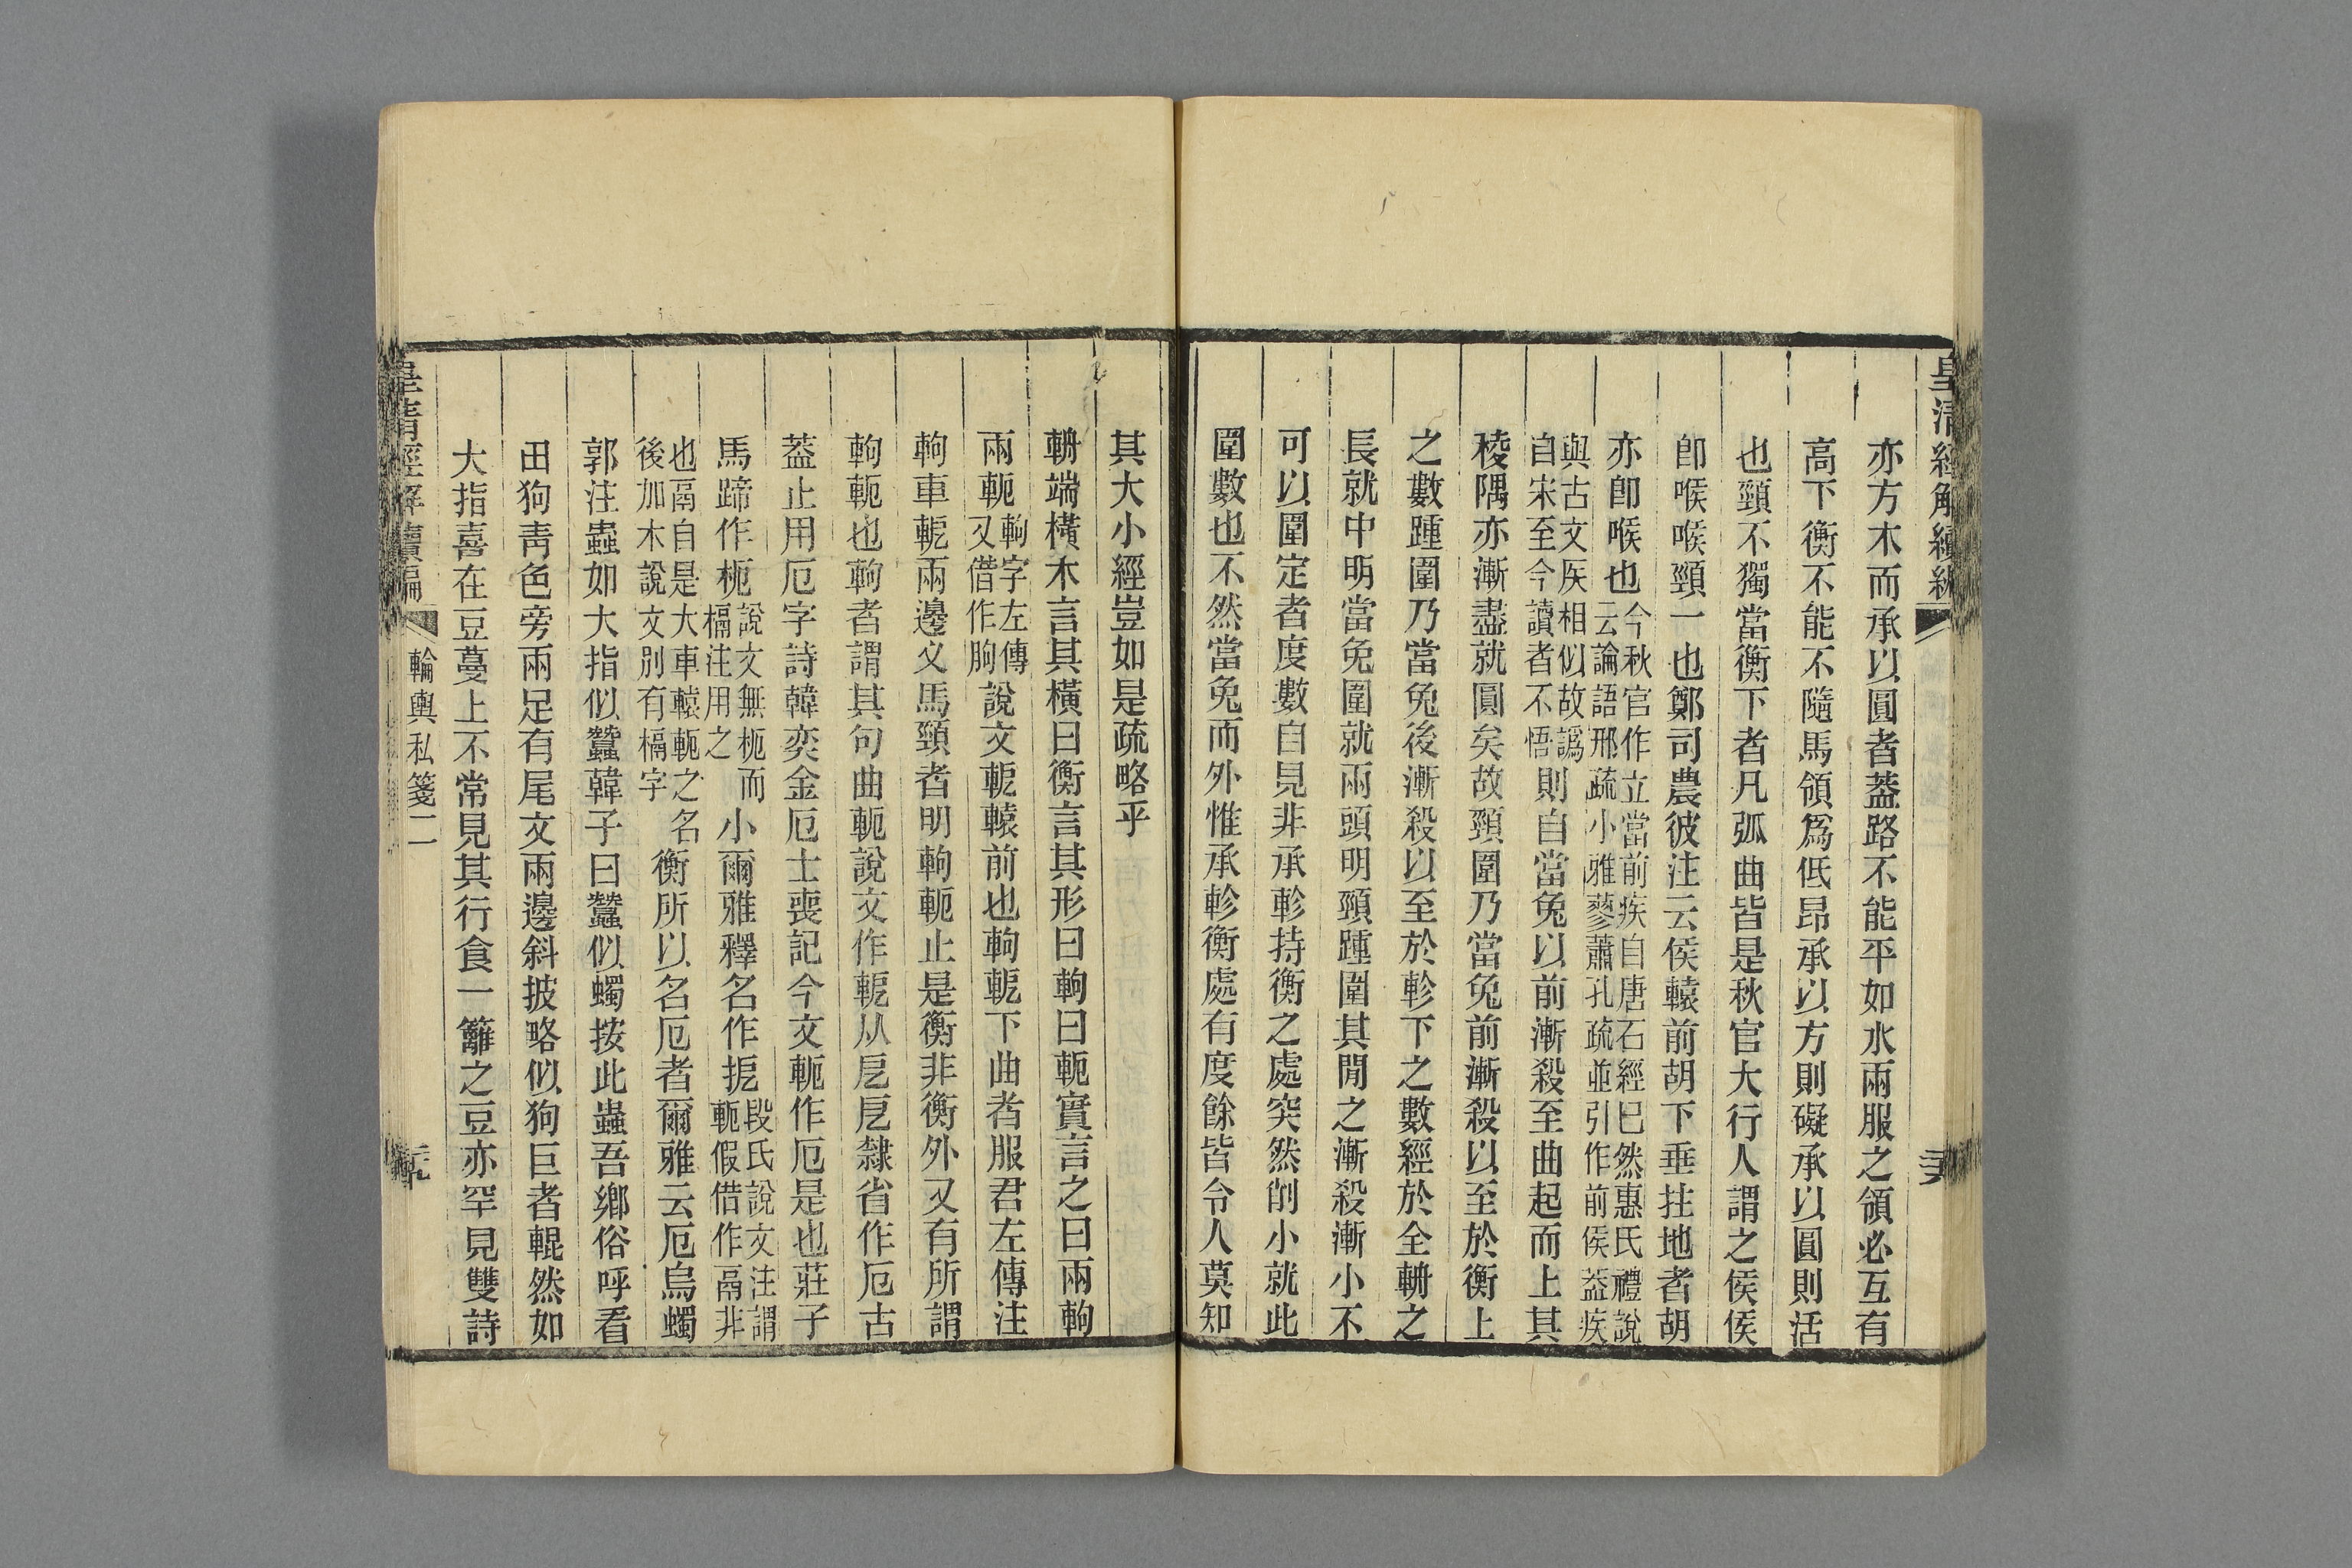 皇清經解續編
亦方木而承以圓者蓋路不能平如水兩服之領必互有
高下衡不能不隨馬領爲低昂承以方則礙承以圓則活
也頸不獨當衡下者凡弧曲皆是秋官大行人謂之侯侯
卽喉喉頸一也鄭司農彼注云侯轅前胡下垂拄地者胡
亦卽喉也今秋官作立當前疾自唐石經已然惠氏禮說
云論語邢疏小雅蓼蕭孔疏並引作前侯蓋疾
與古文矦相似故譌
自宋至今讀者不悟則自當兔以前漸殺至曲起而上其
稜隅亦漸盡就圓矣故頸圍乃當兔前漸殺以至於衡上
之數踵圍乃當兔後漸殺以至於軫下之數經於全輈之
長就中明當兔圍就兩頭明頸踵圍其閒之漸殺漸小不
可以圍定者度數自見非承軫持衡之處突然削小就此
圍數也不然當兔而外惟承軫衡處有度餘皆令人莫知
其大小經豈如是疏略乎
輈端橫木言其橫曰衡言其形曰軥曰軛實言之曰兩軥
兩軛軥字左傳
又借作朐說文軶轅前也軥軶下曲者服君左傳注
軥車軶兩邊叉馬頸者明軥軛止是衡非衡外又有所謂
軥軛也軥者謂其句曲軛說文作軶从戹戹隸省作厄古
蓋止用厄字詩韓奕金厄士喪記今文軛作厄是也莊子
馬蹄作枙說文無枙而
槅注用之小爾雅釋名作扼段氏說文注謂
軛假借作鬲非
也鬲自是大車轅軛之名
後加木說文別有槅字衡所以名厄者爾雅云厄烏蠋
郭注蟲如大指似蠶韓子曰蠶似蠋按此蟲吾鄉俗呼看
田狗靑色旁兩足有尾文兩邊斜披略似狗巨者輥然如
大指喜在豆蔓上不常見其行食一籬之豆亦罕見雙詩
皇清經解續編
輪輿私箋二